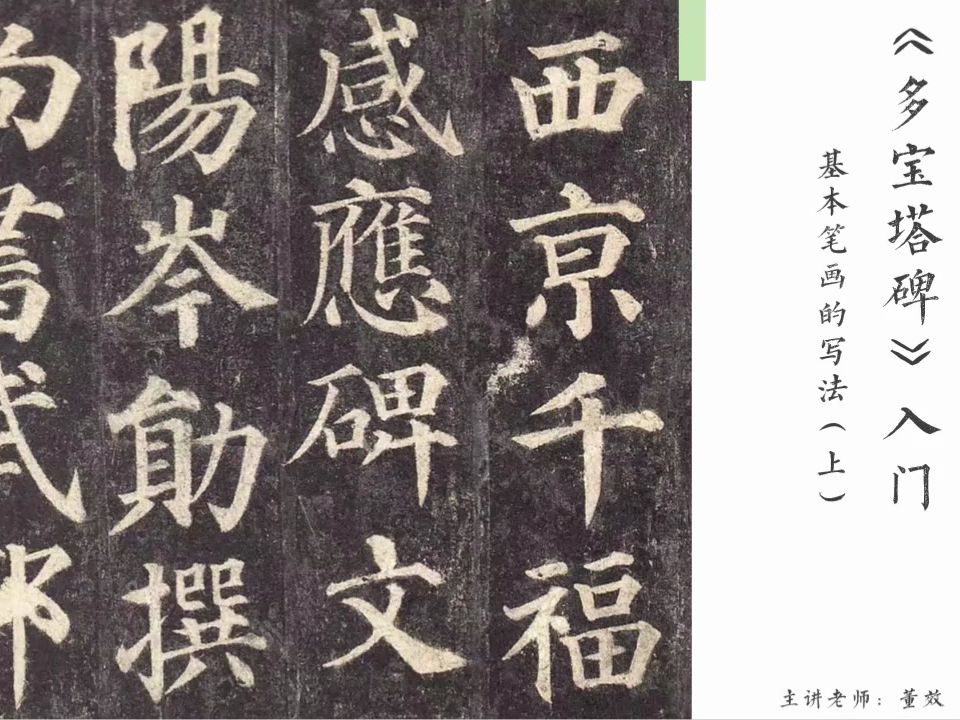 《多宝塔碑》入门
基本笔画的写法（上）
西亰千福
感應碑文
陽岑勛撰
主讲老师：董效